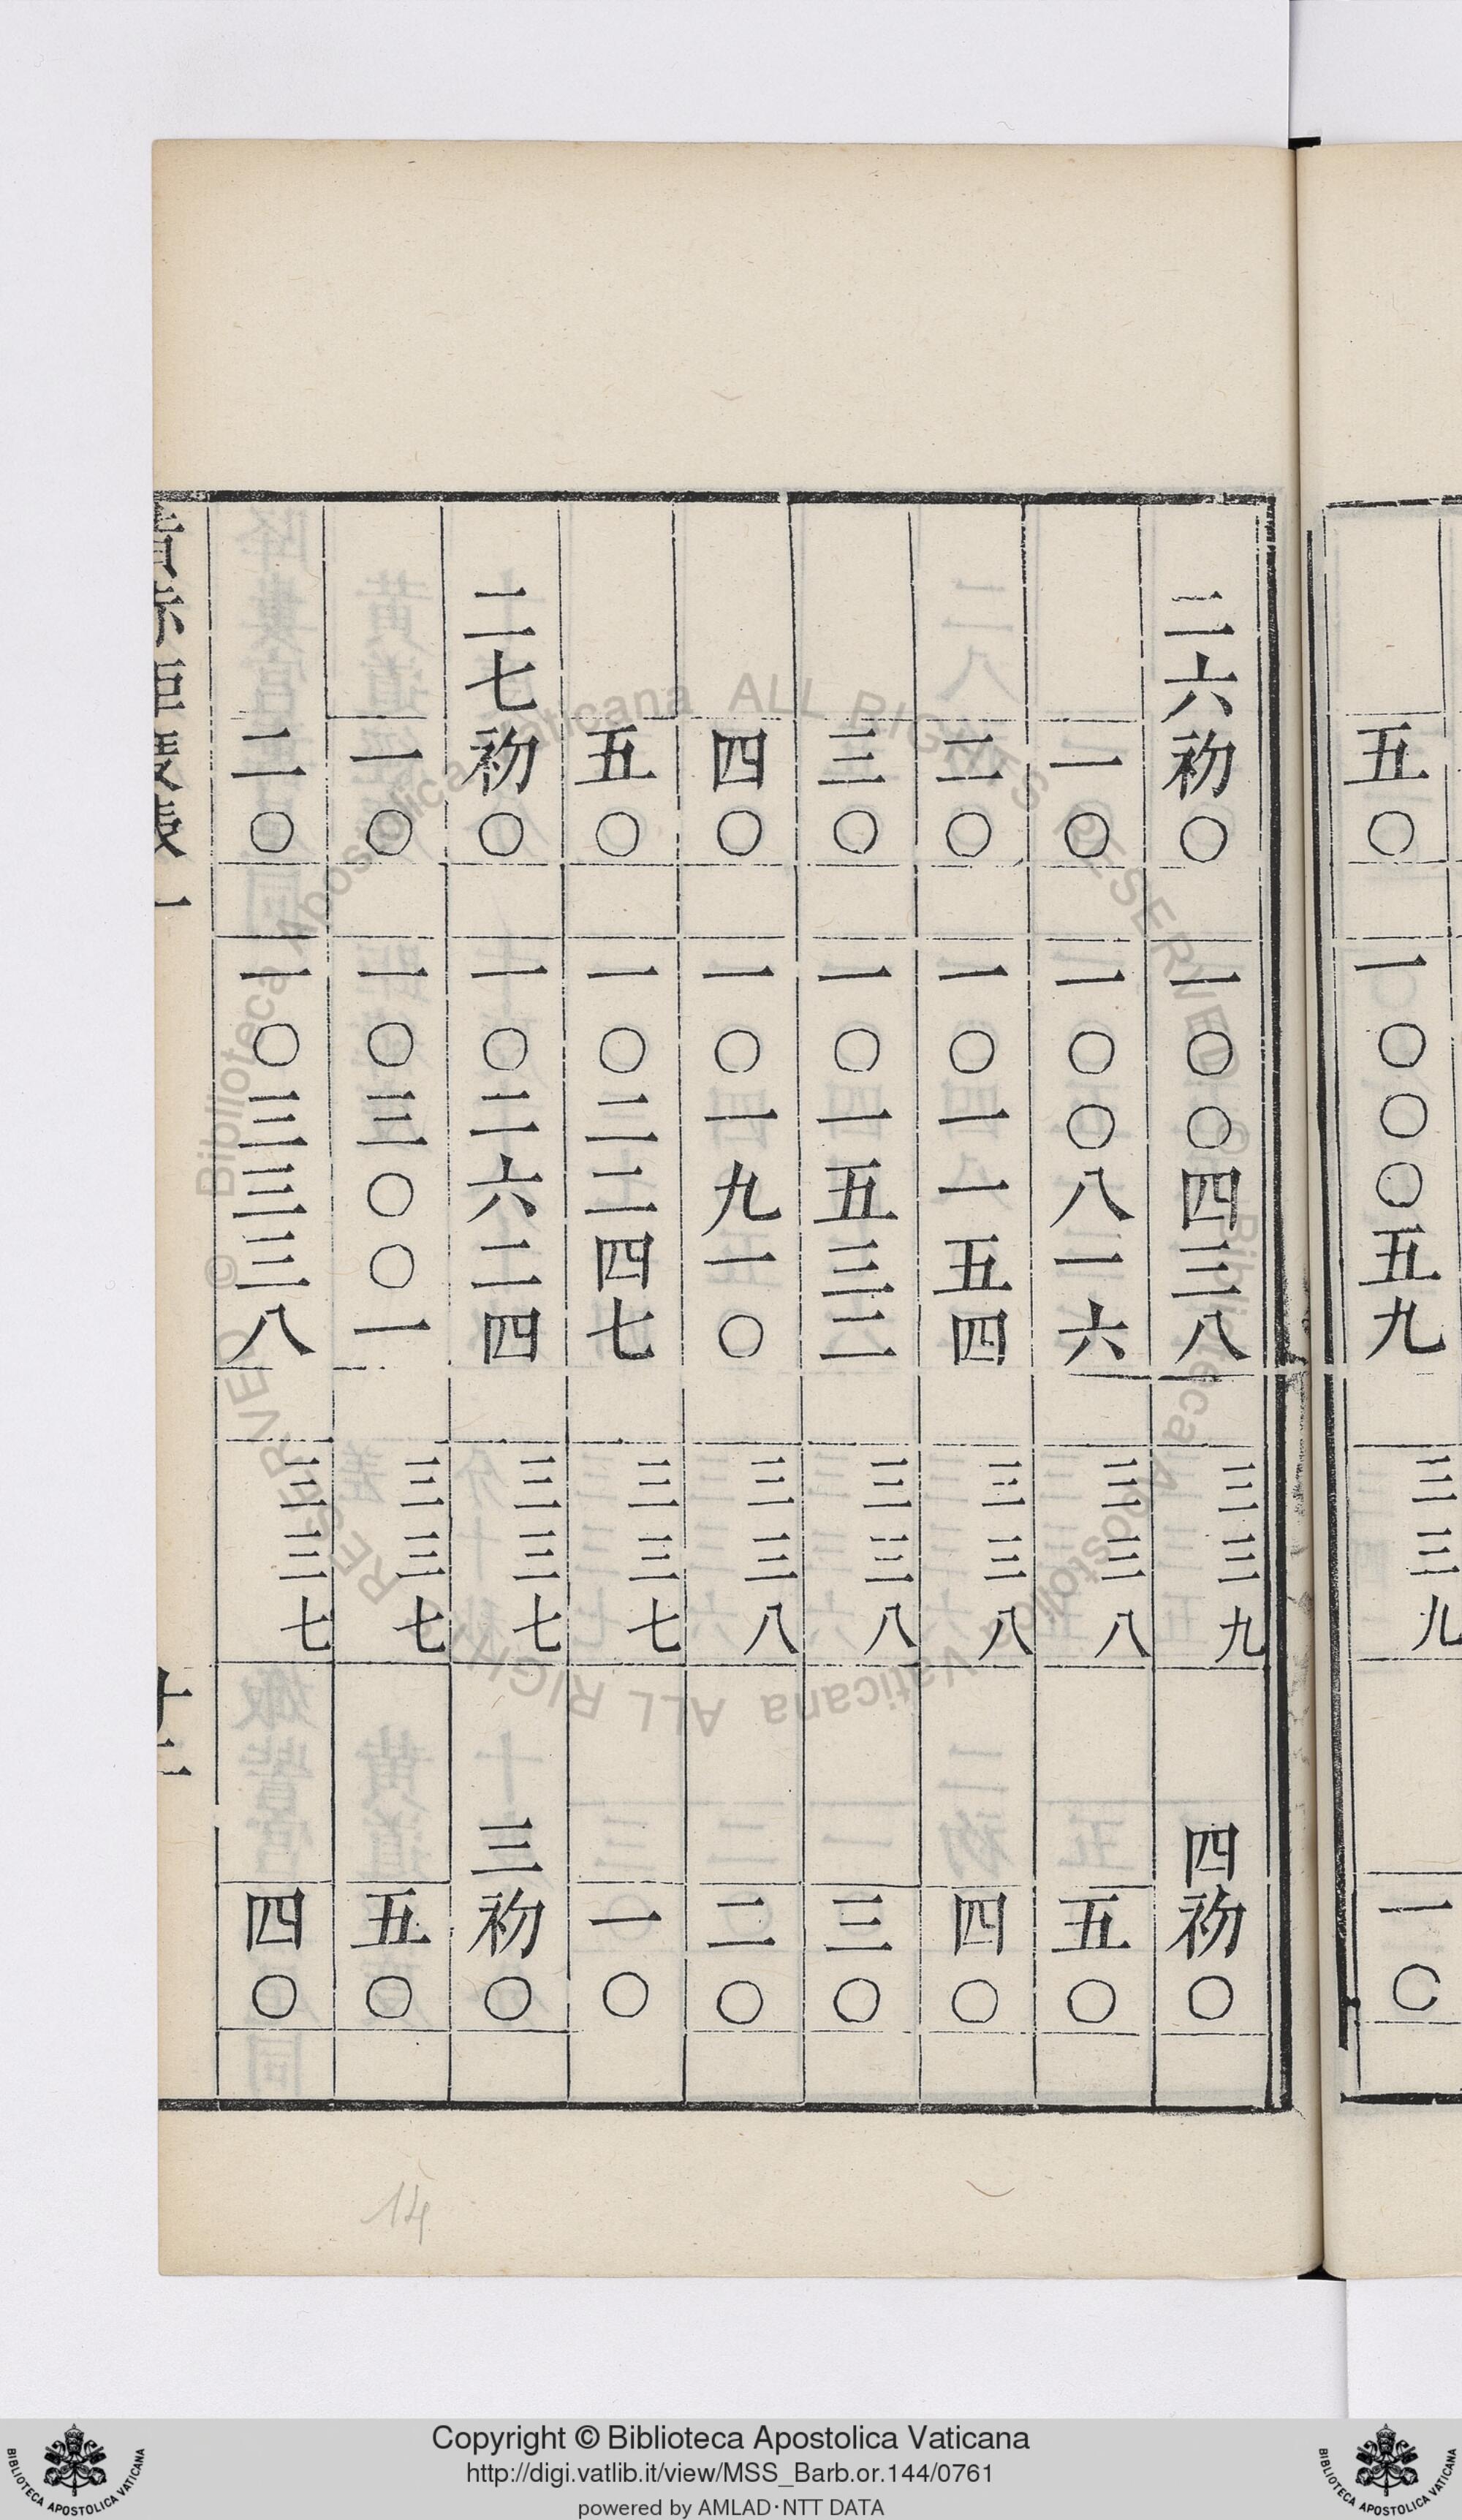 五〇 一〇〇〇五九 三三九 一〇
二六初〇 一〇〇四三八 三三九 四初〇
一〇 一〇〇八一六 三三八 五〇
二〇 一〇一一五四 三三八 四〇
三〇 一〇一五三二 三三八 三〇
四〇 一〇一九一〇 三三八 二〇
五〇 一〇二二四七 三三七 一〇
二七初〇 一〇二六二四 三三七 三初〇
一〇 一〇三〇〇一 三三七 五〇
二〇 一〇三三三八 三三七 四〇
14
© Biblioteca Apostolica Vaticana ALL RIGHTS RESERVED
Copyright © Biblioteca Apostolica Vaticana
http://digi.vatlib.it/view/MSS_Barb.or.144/0761
powered by AMLAD·NTT DATA
BIBLIOTECA APOSTOLICA VATICANA
BIBLIOTECA APOSTOLICA VATICANA